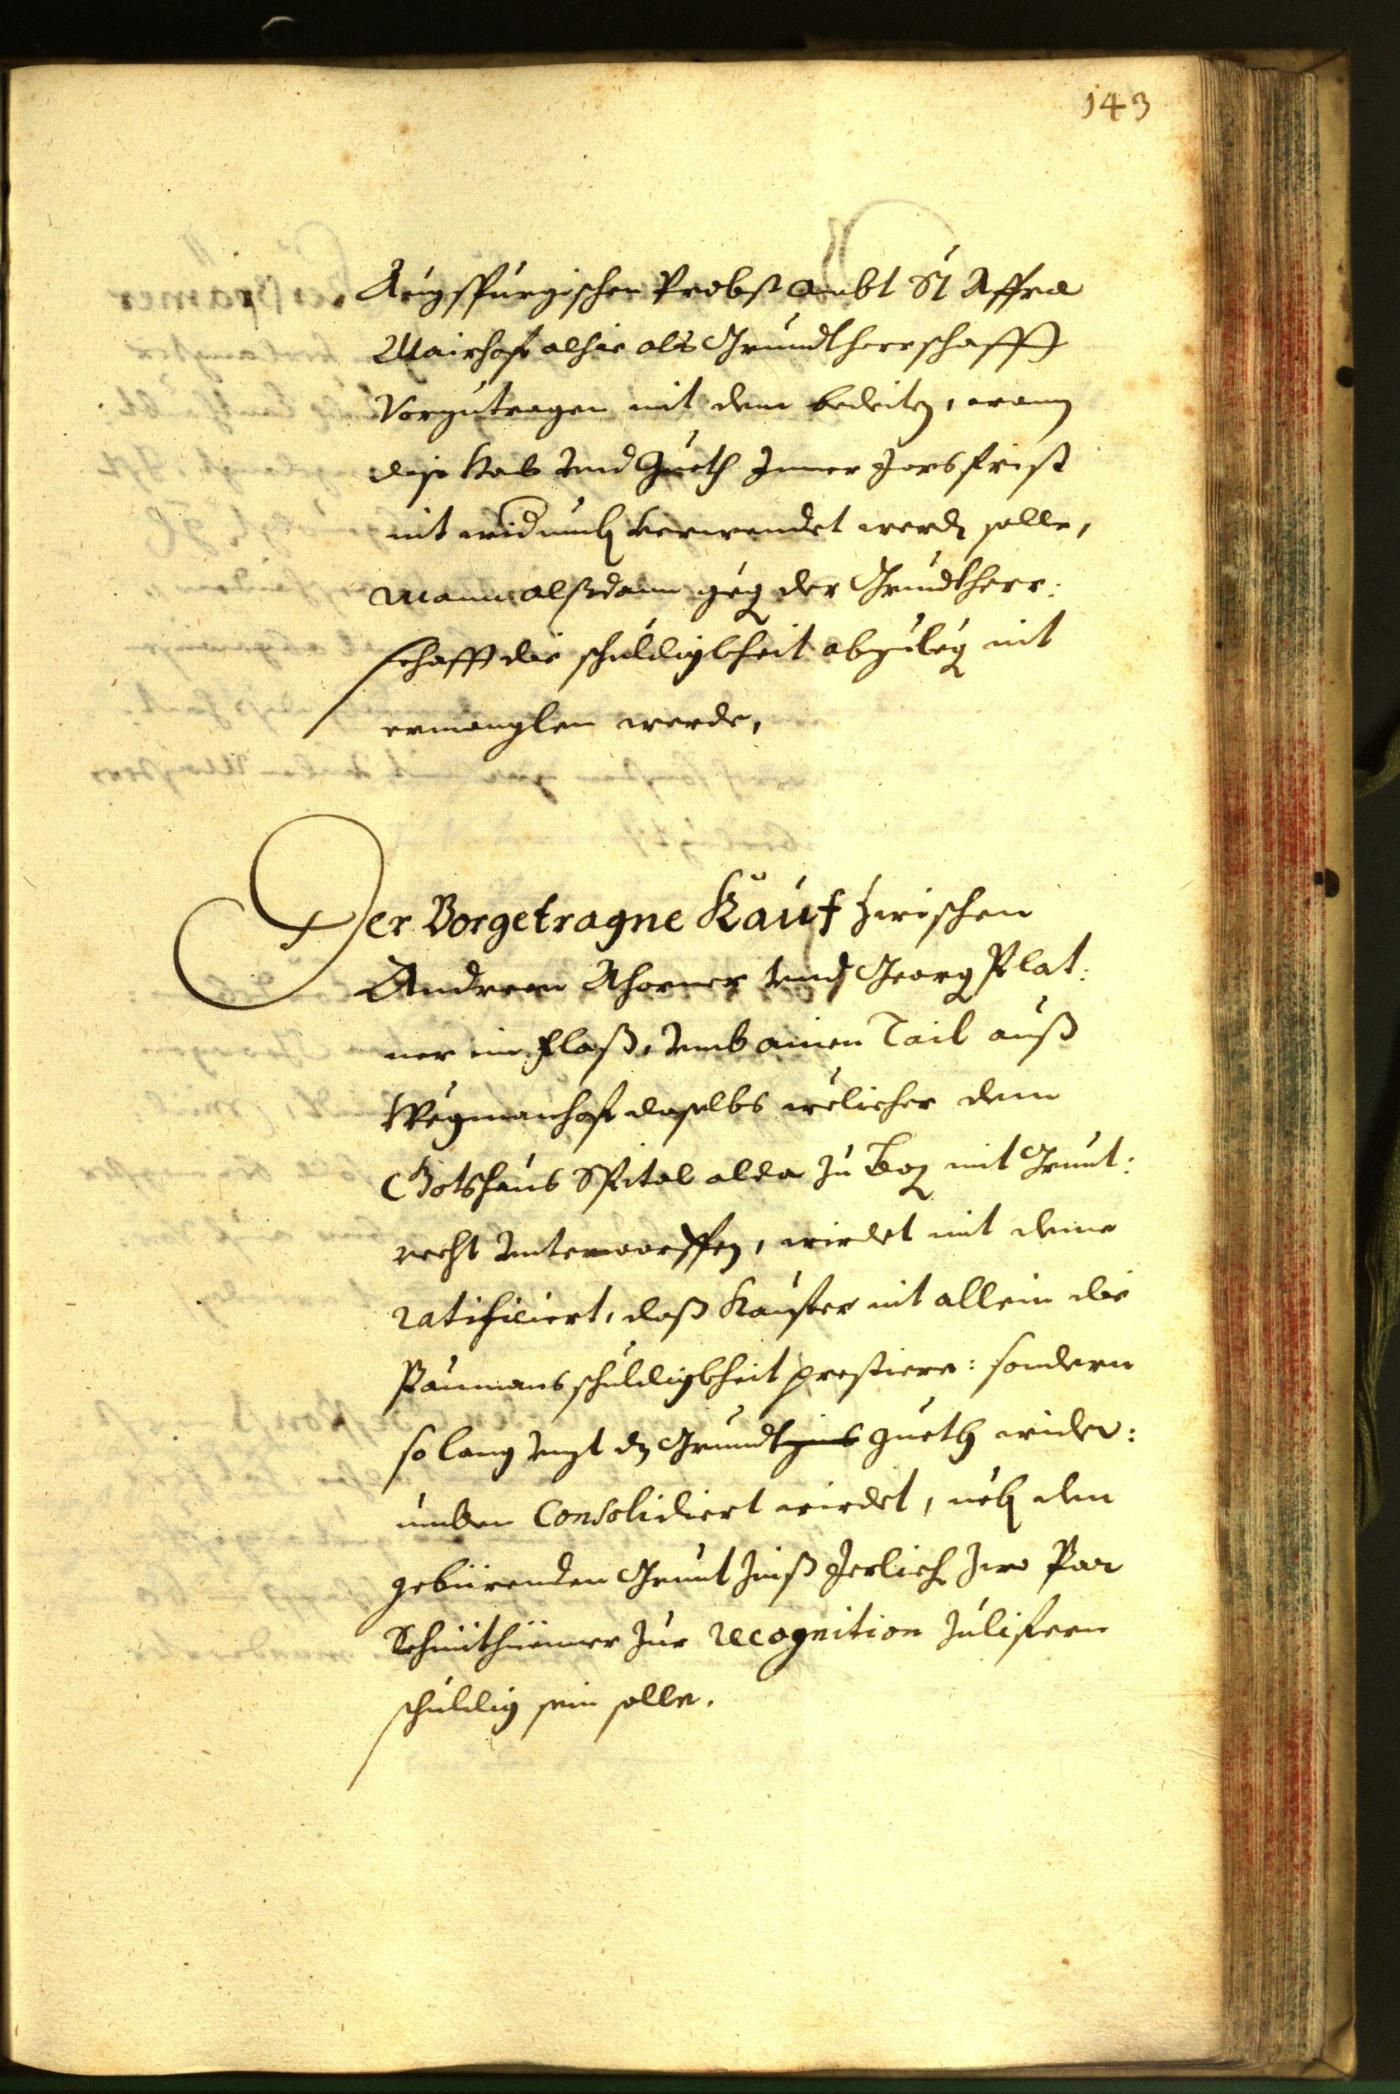 143
Augspurgischen Probst Ambt St Affrae
Mairhof alhie als Grundtherrschafft
Vorzutragen mit dem bedeiten, wann
dise Hab vnd Gueth Inner Jarsfrist
nit widumb verwendet werden solle,
Mann alßdann gegen der Grundtherr:
schafft die schuldigkheit abzulegen nit
ermanglen werde,
Der Vorgetragne Kauf zwischen
Andreen Ahorner vnd Georg Plat:
ner im Flaß, vmb ainen Tail auß
Wegmanhof daselbs welicher dem
Gotshaus Spital alda zu Bozen mit Grunt:
recht vnterworffen, wirdet mit deme
ratificiert, daß Kaufer nit allein die
Paumans schuldigkheit prestiere: sondern
so lang vnzt dz Grundt gueth wider:
umben Consolidiert wirdet, neben dem
gebürenden Grunt Zinß Jerlich Zwo Par
Schnithüenner zur recognition zulifern
schuldig sein solle.